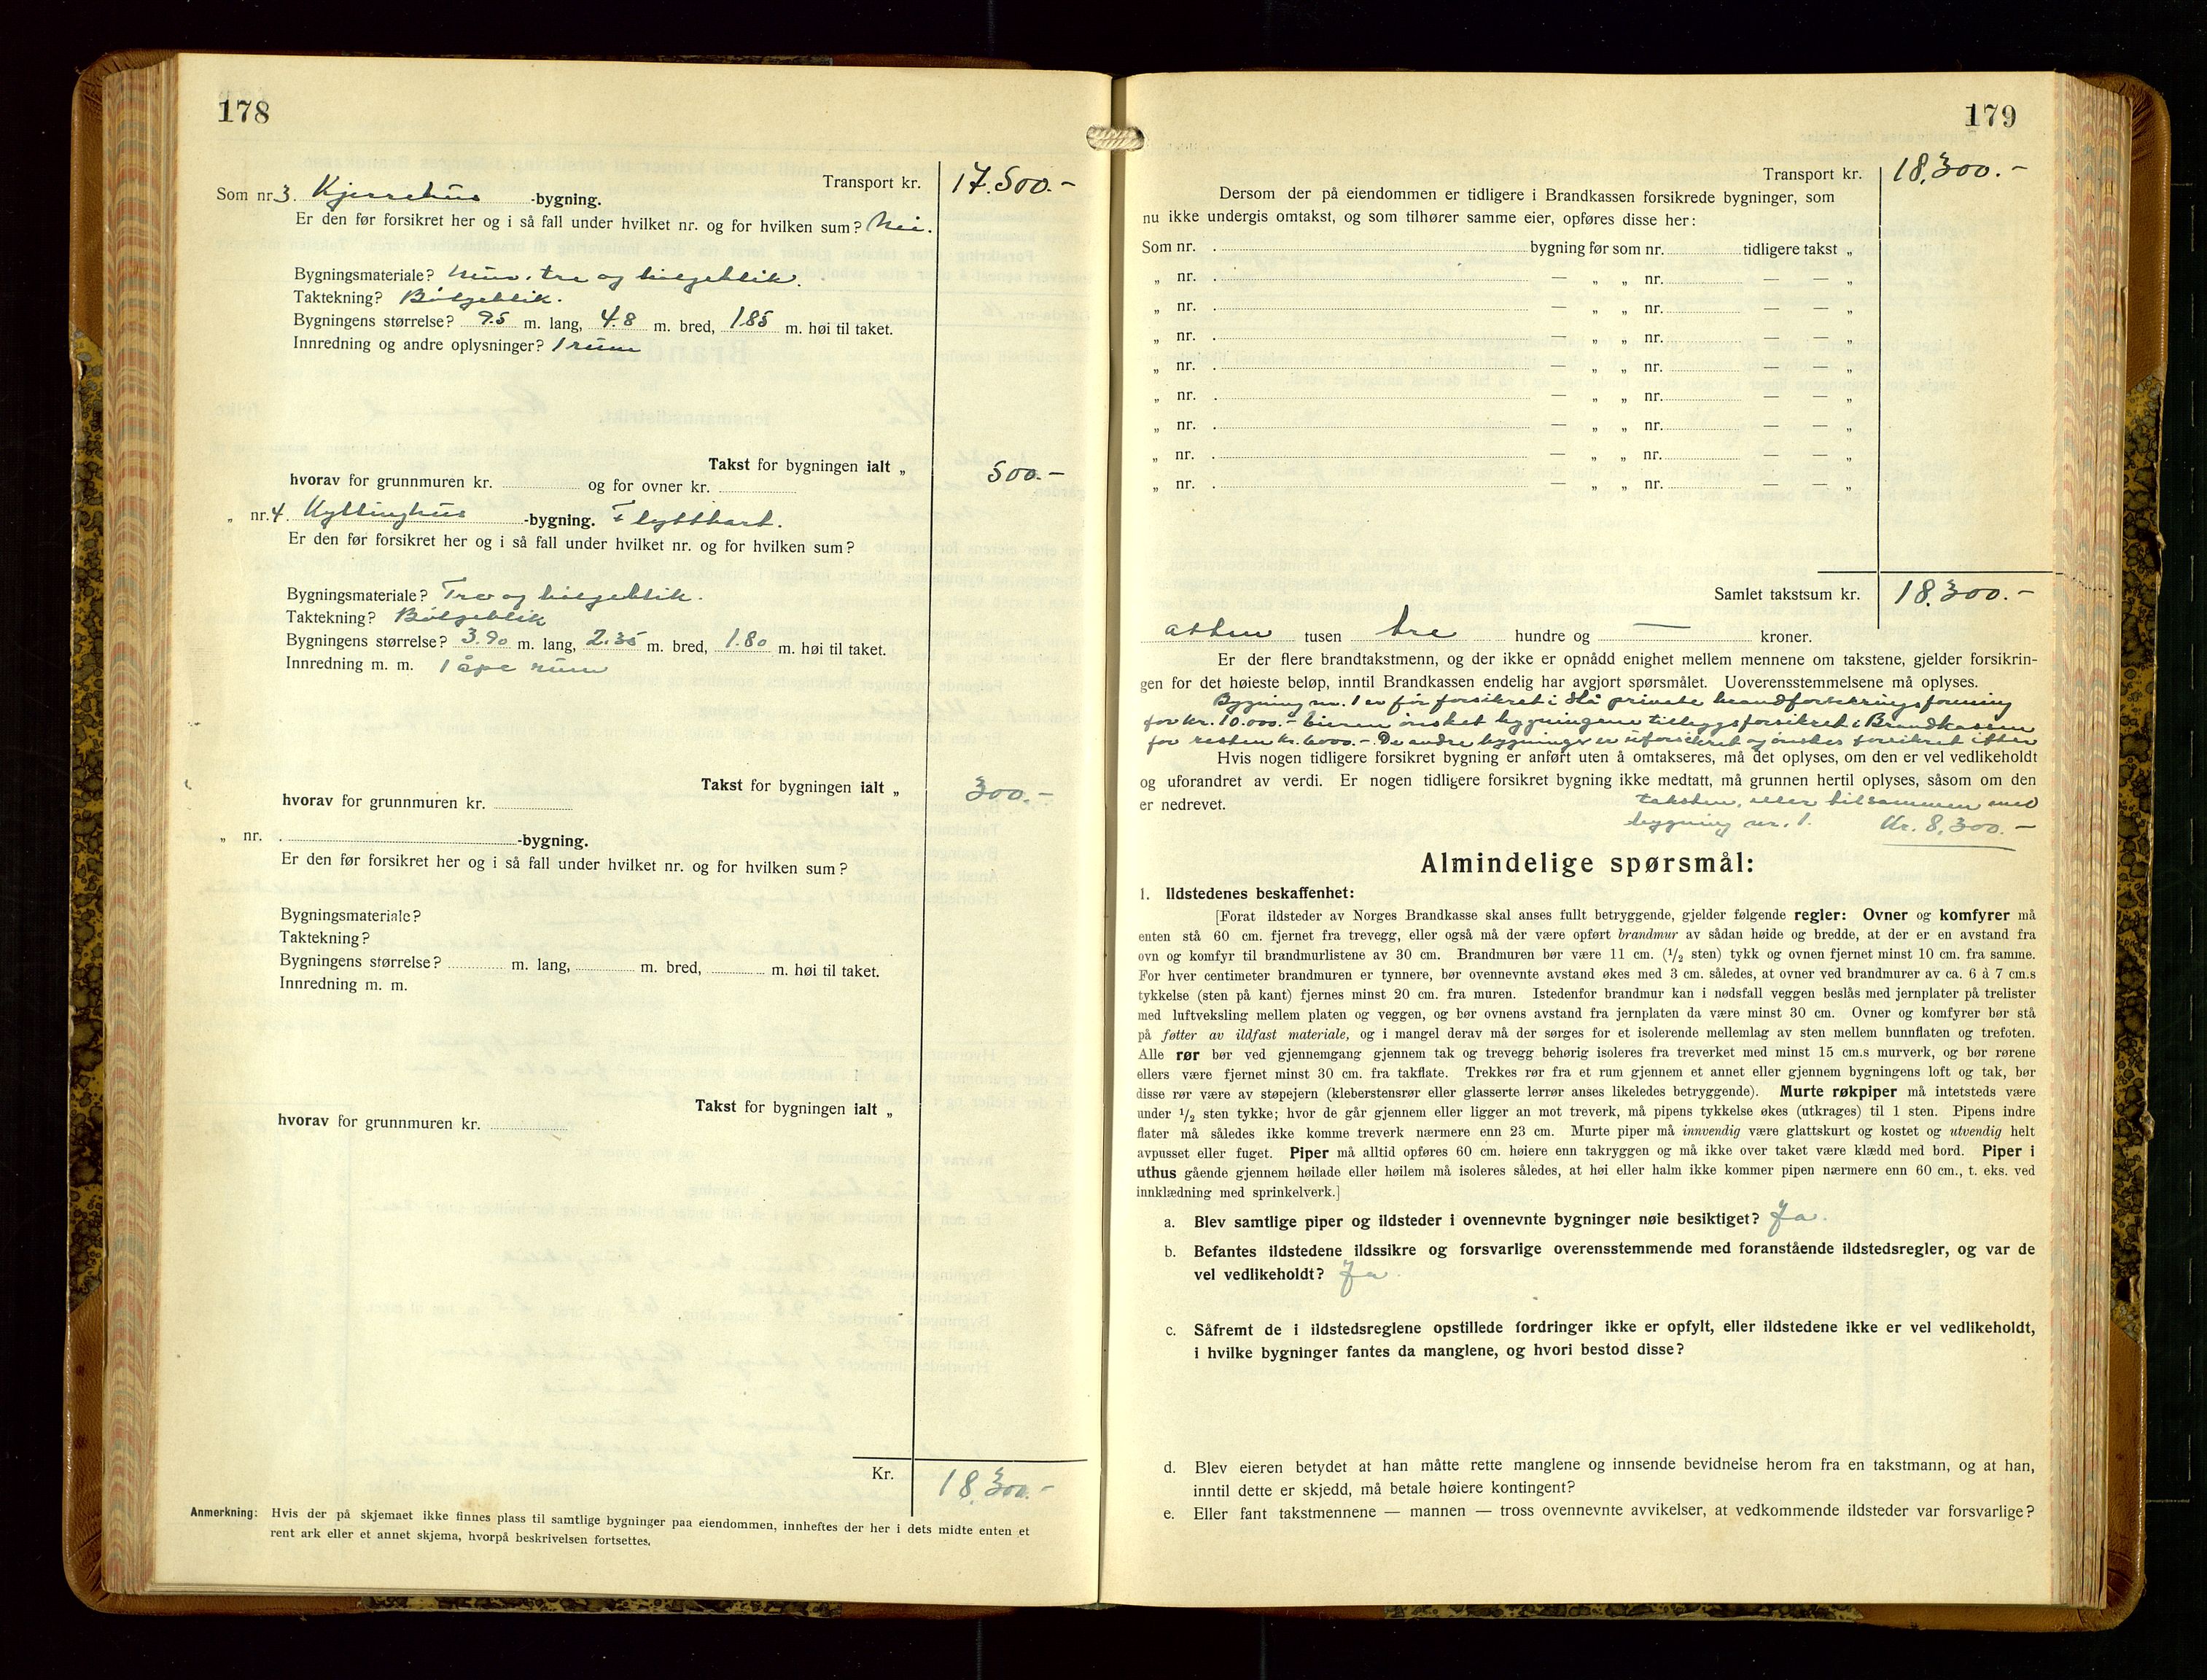 178
Transport kr. 17.500.-
Som nr. 3. Kjerrehus -bygning.
Er den før forsikret her og i så fall under hvilket nr. og for hvilken sum? Nei.
Bygningsmateriale? Mur, tre og bølgeblik.
Taktekning? Bølgeblik.
Bygningens størrelse? 9.5 m. lang, 4.8 m. bred, 1.85 m. høi til taket.
Innredning og andre oplysninger? 1 rum
Takst for bygningen ialt „ 500.-
hvorav for grunnmuren kr. og for ovner kr.
„ nr. 4. Kyllinghus -bygning. Flyttbart.
Er den før forsikret her og i så fall under hvilket nr. og for hvilken sum?
Bygningsmateriale? Tre og bølgeblik.
Taktekning? Bølgeblik
Bygningens størrelse? 3.90 m. lang, 2.35 m. bred, 1.80 m. høi til taket.
Innredning m. m. 1 åpe rum
Takst for bygningen ialt „ 300.-
hvorav for grunnmuren kr.
„ nr. . -bygning.
Er den før forsikret her og i så fall under hvilket nr. og for hvilken sum?
Bygningsmateriale?
Taktekning?
Bygningens størrelse? m. lang, m. bred, m. høi til taket.
Innredning m. m.
Takst for bygningen ialt „
hvorav for grunnmuren kr.
Kr. 18.300.-
Anmerkning: Hvis der på skjemaet ikke finnes plass til samtlige bygninger paa eiendommen, innheftes der her i dets midte enten et
rent ark eller et annet skjema, hvorpå beskrivelsen fortsettes.
179
Transport kr. 18.300.-
Dersom der på eiendommen er tidligere i Brandkassen forsikrede bygninger, som
nu ikke undergis omtakst, og som tilhører samme eier, opføres disse her:
Som nr. . bygning før som nr. tidligere takst „
„ nr. . — „ „ nr. — — „
„ nr. . — „ „ nr. — — „
„ nr. . — „ „ nr. — — „
„ nr. . — „ „ nr. — — „
„ nr. . — „ „ nr. — — „
„ nr. . — „ „ nr. — — „
„ nr. . — „ „ nr. — — „
„ nr. . — „ „ nr. — — „
Samlet takstsum kr. 18.300.-
atten tusen tre hundre og — kroner.
Er der flere brandtakstmenn, og der ikke er opnådd enighet mellem mennene om takstene, gjelder forsikrin-
gen for det høieste beløp, inntil Brandkassen endelig har avgjort spørsmålet. Uoverensstemmelsene må oplyses.
Bygning nr. 1 er før forsikret i Hå private brandforsikringsforening
for kr. 10.000.- Eieren ønsket bygningene tilleggsforsikret i Brandkassen
for resten kr. 6000.-. De andre bygninger er uforsikret og ønskes forsikret efter
Hvis nogen tidligere forsikret bygning er anført uten å omtakseres, må det oplyses, om den er vel vedlikeholdt
og uforandret av verdi. Er nogen tidligere forsikret bygning ikke medtatt, må grunnen hertil oplyses, såsom om den
er nedrevet.
taksten, eller tilsammen med
bygning nr. 1. Kr. 8.300.-
Almindelige spørsmål:
1. Ildstedenes beskaffenhet:
[Forat ildsteder av Norges Brandkasse skal anses fullt betryggende, gjelder følgende regler: Ovner og komfyrer må
enten stå 60 cm. fjernet fra trevegg, eller også må der være opført brandmur av sådan høide og bredde, at der er en avstand fra
ovn og komfyr til brandmurlistene av 30 cm. Brandmuren bør være 11 cm. (1/2 sten) tykk og ovnen fjernet minst 10 cm. fra samme.
For hver centimeter brandmuren er tynnere, bør ovennevnte avstand økes med 3 cm. således, at ovner ved brandmurer av ca. 6 à 7 cm.s
tykkelse (sten på kant) fjernes minst 20 cm. fra muren. Istedenfor brandmur kan i nødsfall veggen beslås med jernplater på trelister
med luftveksling mellem platen og veggen, og bør ovnens avstand fra jernplaten da være minst 30 cm. Ovner og komfyrer bør stå
på føtter av ildfast materiale, og i mangel derav må der sørges for et isolerende mellemlag av sten mellem bunnflaten og trefoten.
Alle rør bør ved gjennemgang gjennem tak og trevegg behørig isoleres fra treverket med minst 15 cm.s murverk, og bør rørene
ellers være fjernet minst 30 cm. fra takflate. Trekkes rør fra et rum gjennem et annet eller gjennem bygningens loft og tak, bør
disse rør være av støpejern (kleberstensrør eller glasserte lerrør anses likeledes betryggende). Murte røkpiper må intetsteds være
under 1/2 sten tykke; hvor de går gjennem eller ligger an mot treverk, må pipens tykkelse økes (utkrages) til 1 sten. Pipens indre
flater må således ikke komme treverk nærmere enn 23 cm. Murte piper må innvendig være glattskurt og kostet og utvendig helt
avpusset eller fuget. Piper må alltid opføres 60 cm. høiere enn takryggen og må ikke over taket være klædd med bord. Piper i
uthus gående gjennem høilade eller høilem må isoleres således, at høi eller halm ikke kommer pipen nærmere enn 60 cm., t. eks. ved
innklædning med sprinkelverk.]
a. Blev samtlige piper og ildsteder i ovennevnte bygninger nøie besiktiget? Ja.
b. Befantes ildstedene ildssikre og forsvarlige overensstemmende med foranstående ildstedsregler, og var de
vel vedlikeholdt? Ja.
c. Såfremt de i ildstedsreglene opstillede fordringer ikke er opfylt, eller ildstedene ikke er vel vedlikeholdt,
i hvilke bygninger fantes da manglene, og hvori bestod disse?
d. Blev eieren betydet at han måtte rette manglene og innsende bevidnelse herom fra en takstmann, og at han,
inntil dette er skjedd, må betale høiere kontingent?
e. Eller fant takstmennene — mannen — tross ovennevnte avvikelser, at vedkommende ildsteder var forsvarlige?